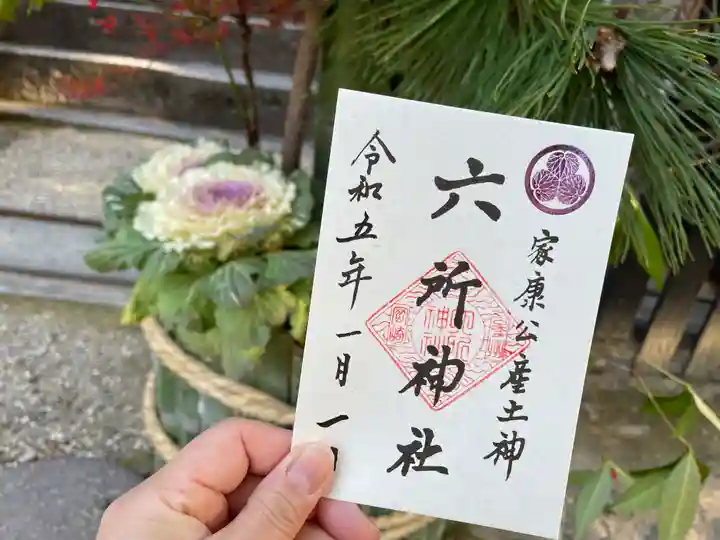 家康公産土神
六所神社
令和五年一月一日
岡崎